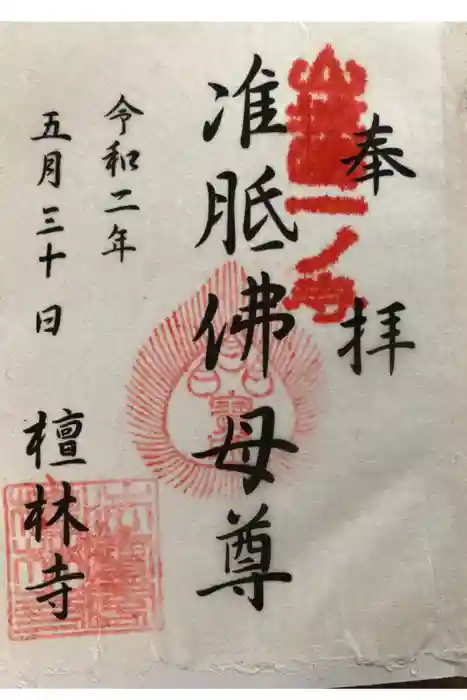 奉拝
准胝佛母尊
令和二年
五月三十日
檀林寺